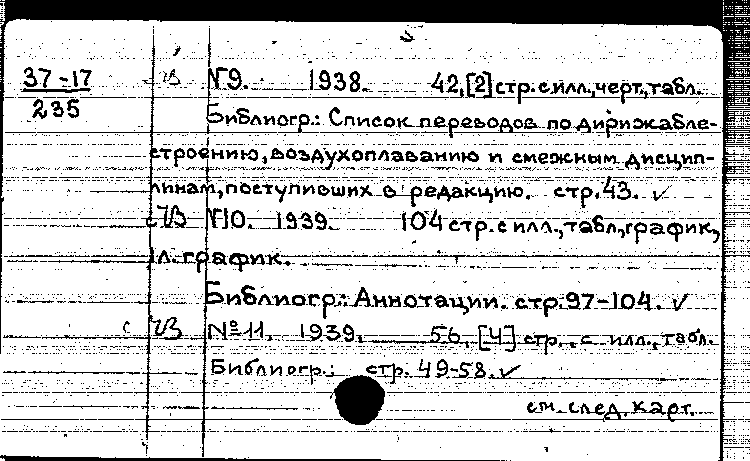 37-17
235
N9. 1938. 42,[2] стр. с илл., черт., табл.
Библиогр.: Список переводов по дирижабле-
строению, воздухоплаванию и смежным дисцип-
линам, поступивших в редакцию. стр. 43. ✓
N10. 1939. 104 стр. с илл., табл., график,
1 л. график.
Библиогр.: Аннотации. стр. 97-104. ✓
№ 11. 1939. 56, [4] стр. с илл., табл.
Библиогр.: стр. 49-58. ✓
см. след. карт.